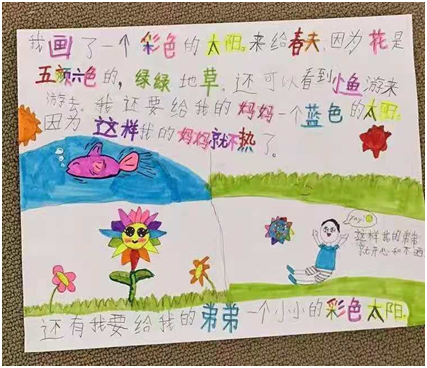 我画了一个彩色的太阳。来给春夫.因为花是
五颜六色的,绿绿地草.还可以看到小鱼游来
游去.我还要给我的妈妈一个蓝色的太阳.
因为这样我的妈妈就不热了。
yay!
这样我的弟弟
就开心
还有我要给我的弟弟一个小小的彩色太阳.